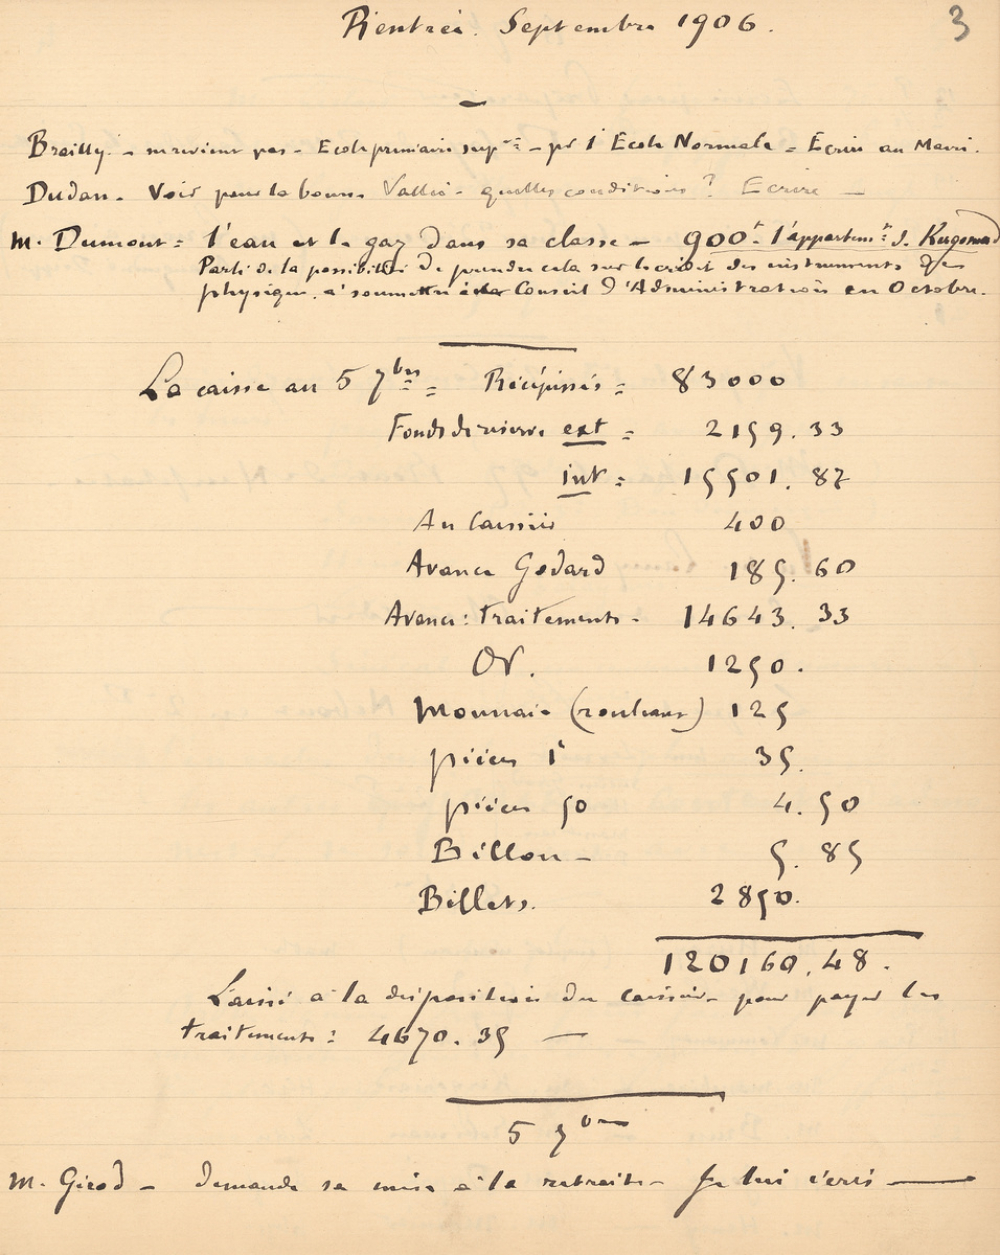 3
Rentrée. Septembre 1906.
Brailly. - ne revient pas - Ecole primaire sup^re - pr l'Ecole Normale = Ecrire au Maire.
Dudan. Voir pour la bourse Vallée - quelles conditions ? Ecrire —
M. Dumont = l'eau et le gaz dans sa classe - 900^f. l'appartem^t d.
Parlé de la possibilité de prendre cela sur le crédit des instruments de
physique. à soumettre à la Conseil d'Administration en Octobre.
La caisse au 5 7^bre = Récépissés = 83000
Fonds de réserve ext = 2159.33
int = 15501.87
Au Caissier 400
Avance Godard 185.60
Avance : traitements - 14643.33
Or. 1250.
Monnaie (rouleaux) 125
pièces 1^f 35.
pièces 50 4.50
Billon - 5.85
Billets. 2850.
120160.48.
Laissé à la disposition du caissier pour payer les
traitements : 4670.35 —
5 7^bre
M. Girod - demande sa mise à la retraite - Je lui écris —